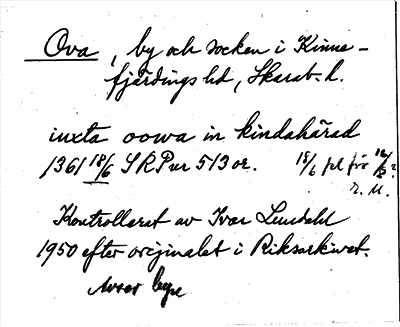 Ova, by och socken i Kinne-
fjärdings hd, Skarab. l.
iuxta oowa in kindahärad
1361 18/6 SRP nr 513 or. 18/6 fel för
Kontrollerat av Ivar Lundahl
1950 efter originalet i Riksarkivet.
Avser byn